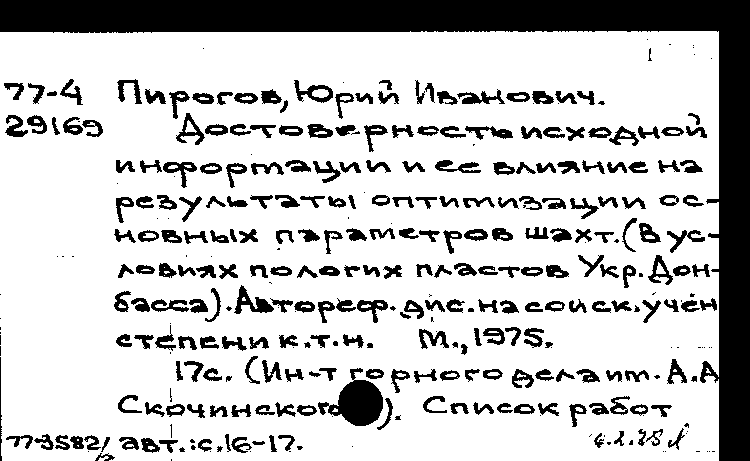 77-4 Пирогов, Юрий Иванович.
29169 Достоверность исходной
информации и ее влияние на
результаты оптимизации ос-
новных параметров шахт. (В ус-
ловиях пологих пластов Укр. Дон-
басса). Автореф. дис. на соиск. учен
степени к.т.н. М., 1975.
17с. (Ин-т горного дела им. А.А
Скочинского). Список работ
авт.: с.16-17.